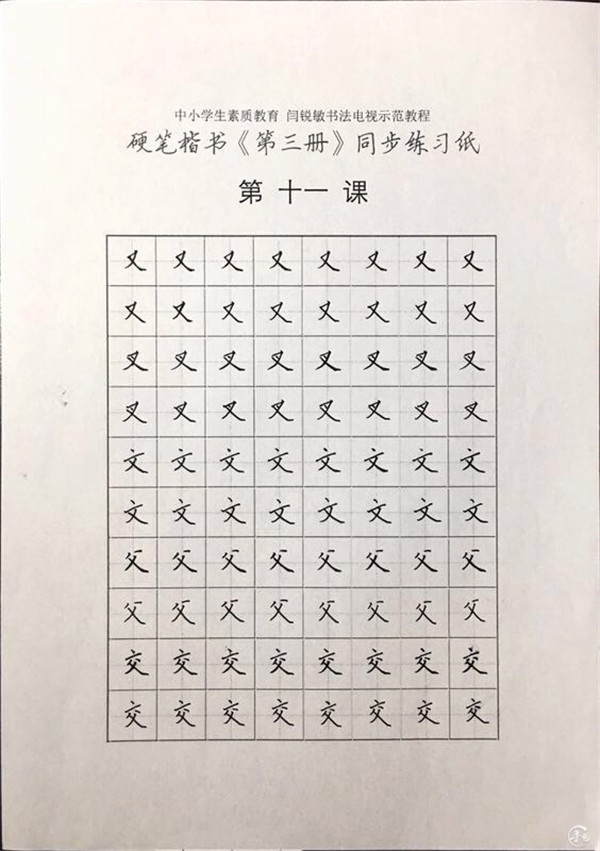 中小学生素质教育 闫锐敏书法电视示范教程
硬笔楷书《第三册》同步练习纸
第 十一 课
又 又 又 又 又 又 又 又
又 又 又 又 又 又 又 又
叉 叉 叉 叉 叉 叉 叉 叉
叉 叉 叉 叉 叉 叉 叉 叉
文 文 文 文 文 文 文 文
文 文 文 文 文 文 文 文
父 父 父 父 父 父 父 父
父 父 父 父 父 父 父 父
交 交 交 交 交 交 交 交
交 交 交 交 交 交 交 交